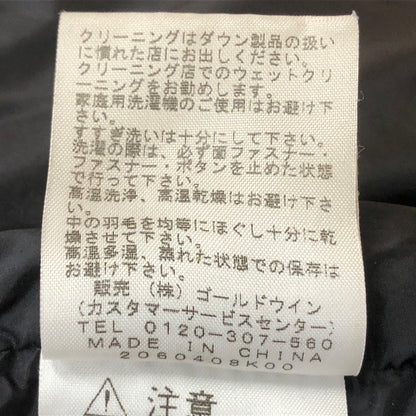 クリーニングはダウン製品の扱い
に慣れた店にお出しください。
クリーニング店でのウェットクリ
ーニングをお勧めします。
家庭用洗濯機のご使用はお避け下
さい。
すすぎ洗いは十分にして下さい。
洗濯の際は、必ず面ファスナー・
ファスナー・ボタンを止めた状態
で行って下さい。
高温洗浄、高温乾燥はお避け下さ
い。
中の羽毛を均等にほぐし十分に乾
燥させて下さい。
高温多湿、蒸れた状態での保存は
お避け下さい。
販売 (株)ゴールドウイン
(カスタマーサービスセンター)
TEL 0120-307-560
MADE IN CHINA
2060408K00
注意